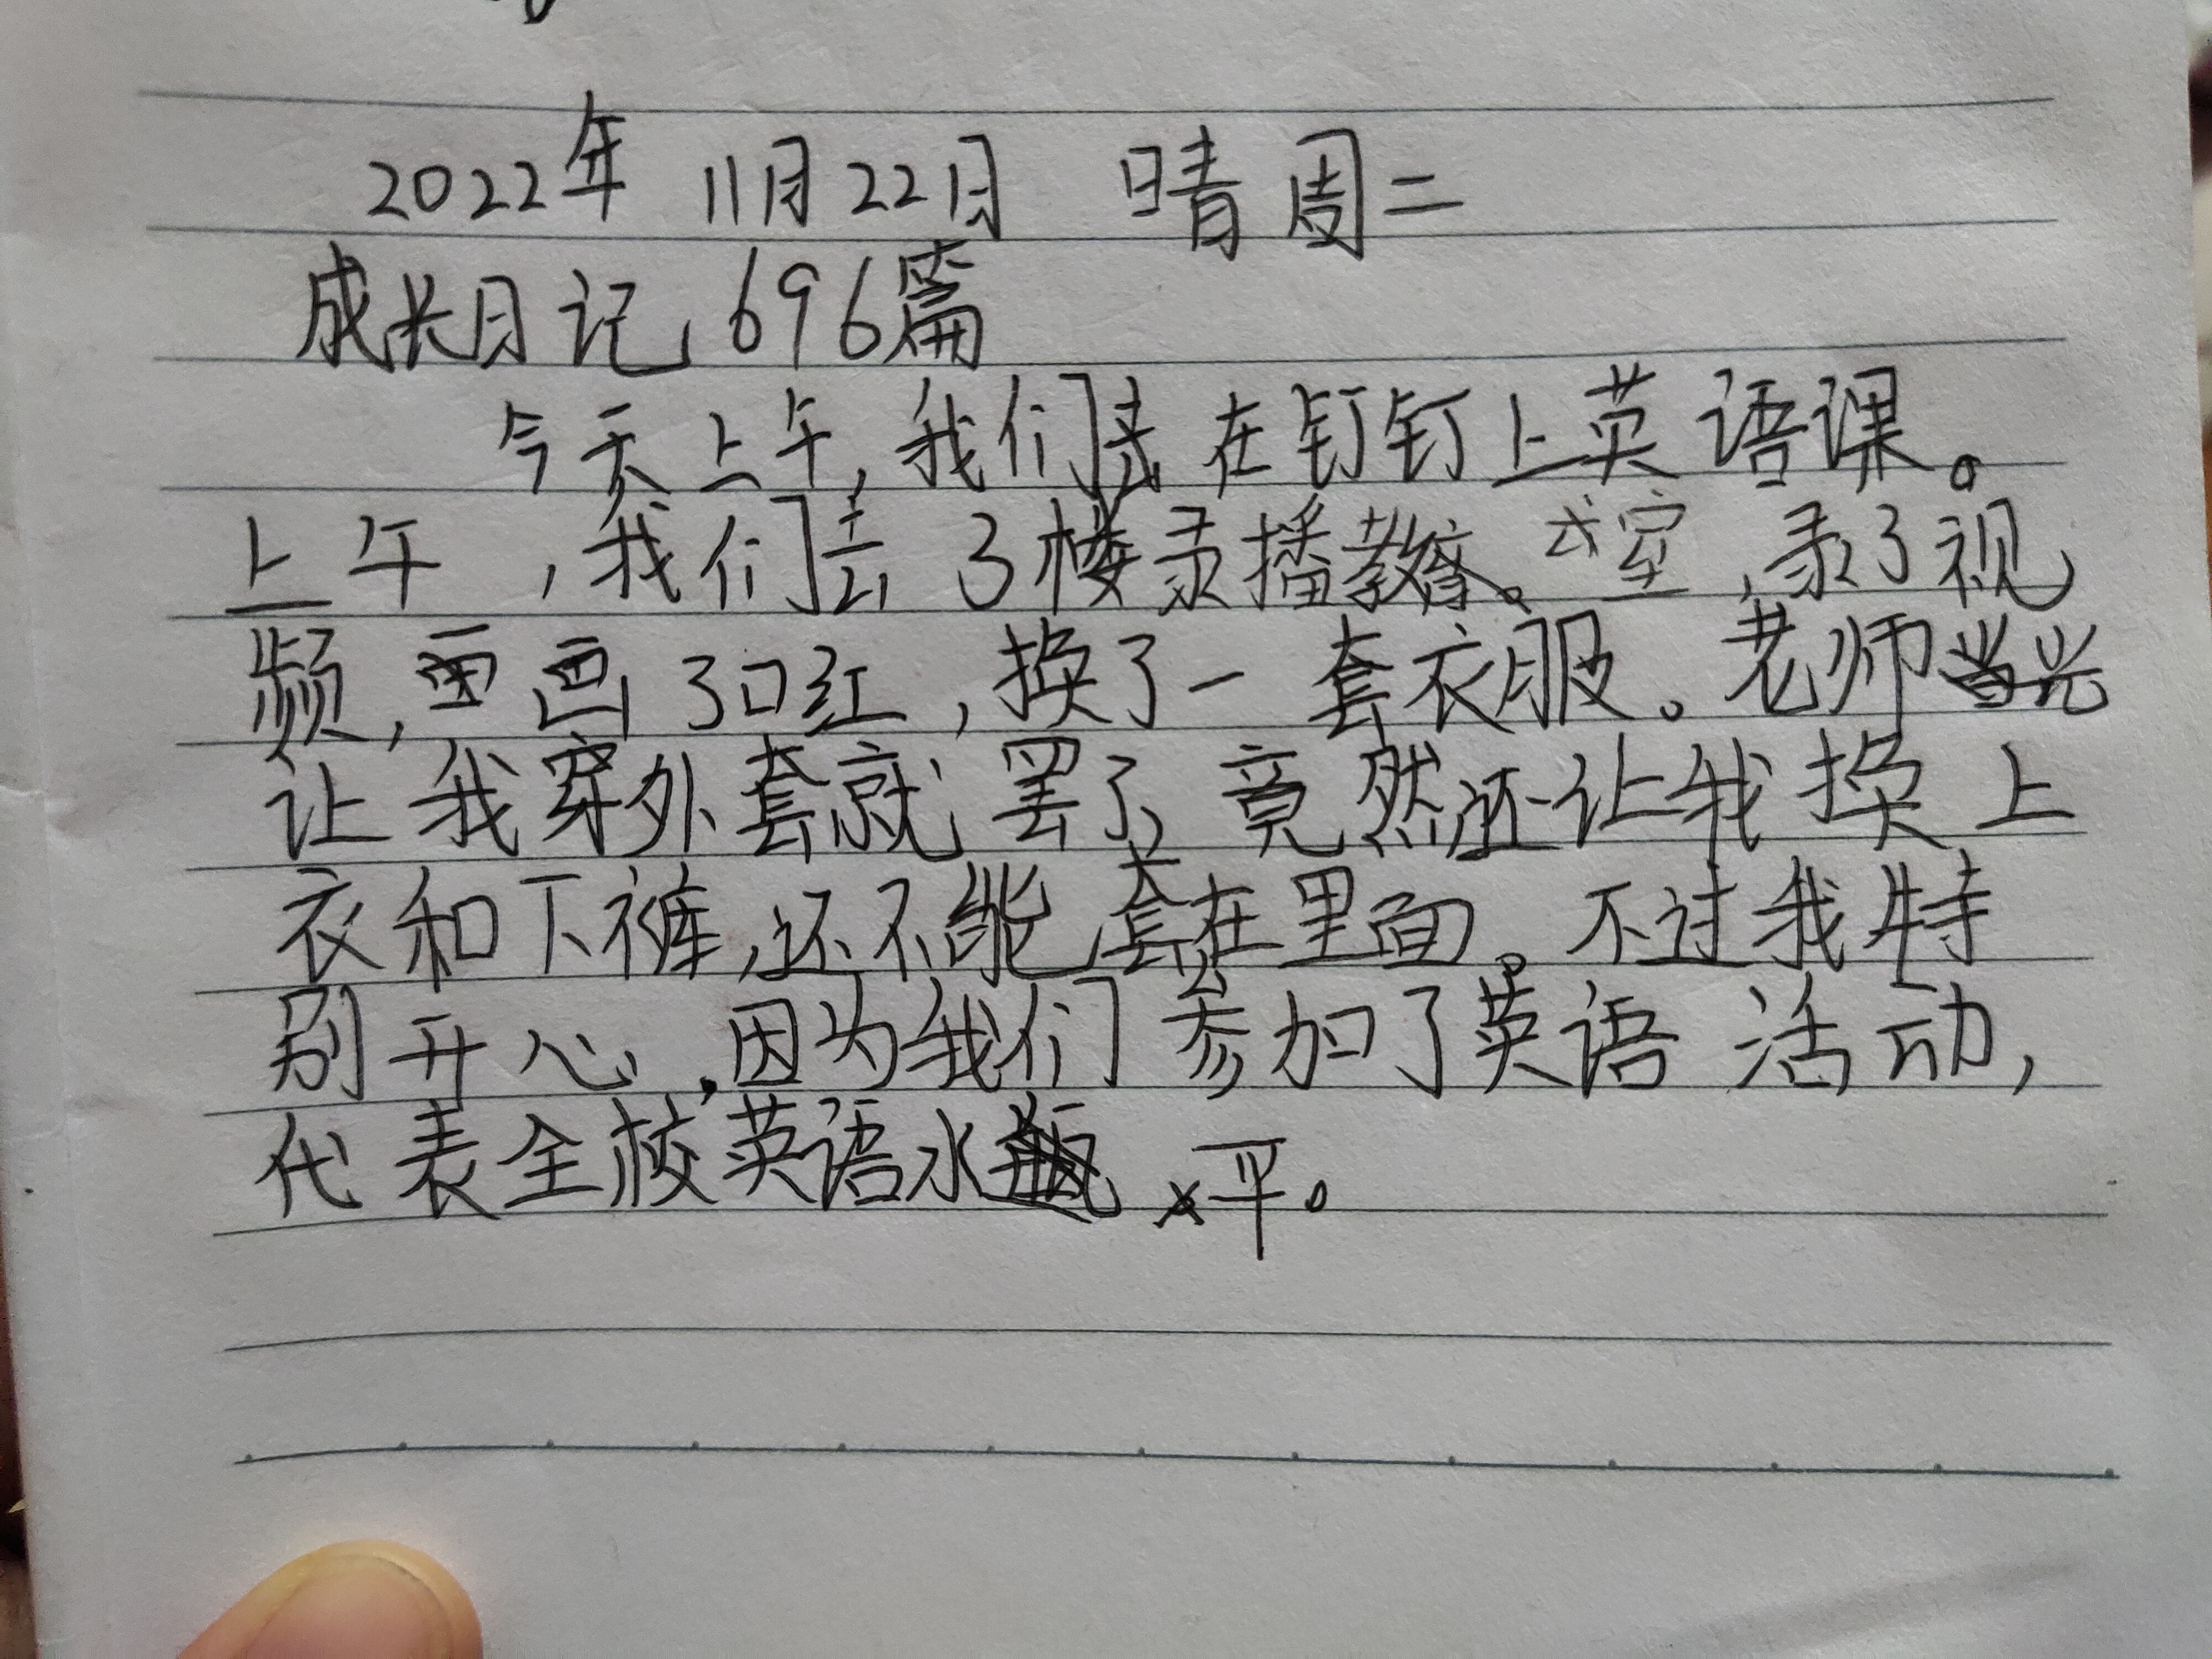 2022年 11月22日 晴 周二
成长日记 696篇
今天上午,我们去在钉钉上英语课。
上午,我们去3楼录播教室,录了视
频,画了口红,换了一套衣服。老师光
让我穿外套就罢了,竟然还让我换上
衣和下裤,还不能套在里面。不过我特
别开心,因为我们参加了英语活动,
代表全校英语水平。